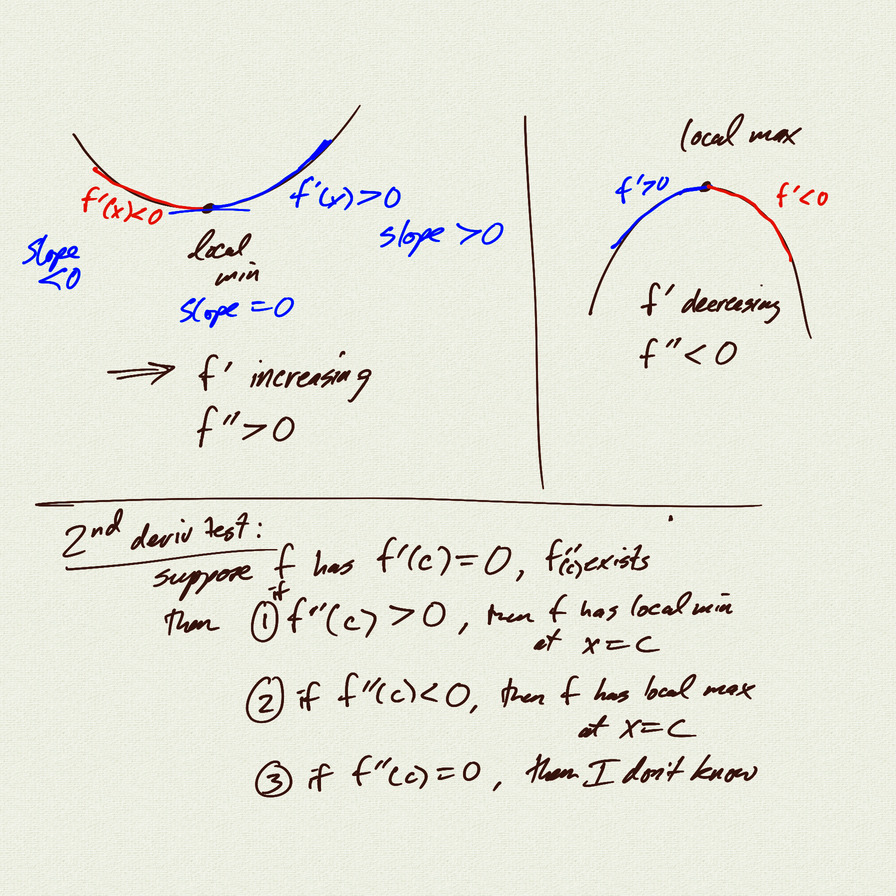 f'(x)<0
f'(x)>0
slope <0
local min
slope >0
slope =0
⟹ f' increasing
f''>0
local max
f'>0
f'<0
f' decreasing
f''<0
2nd deriv test:
suppose f has f'(c)=0, f''(c) exists
then ① if f''(c)>0, then f has local min
at x=c
② if f''(c)<0, then f has local max
at x=c
③ if f''(c)=0, then I don't know